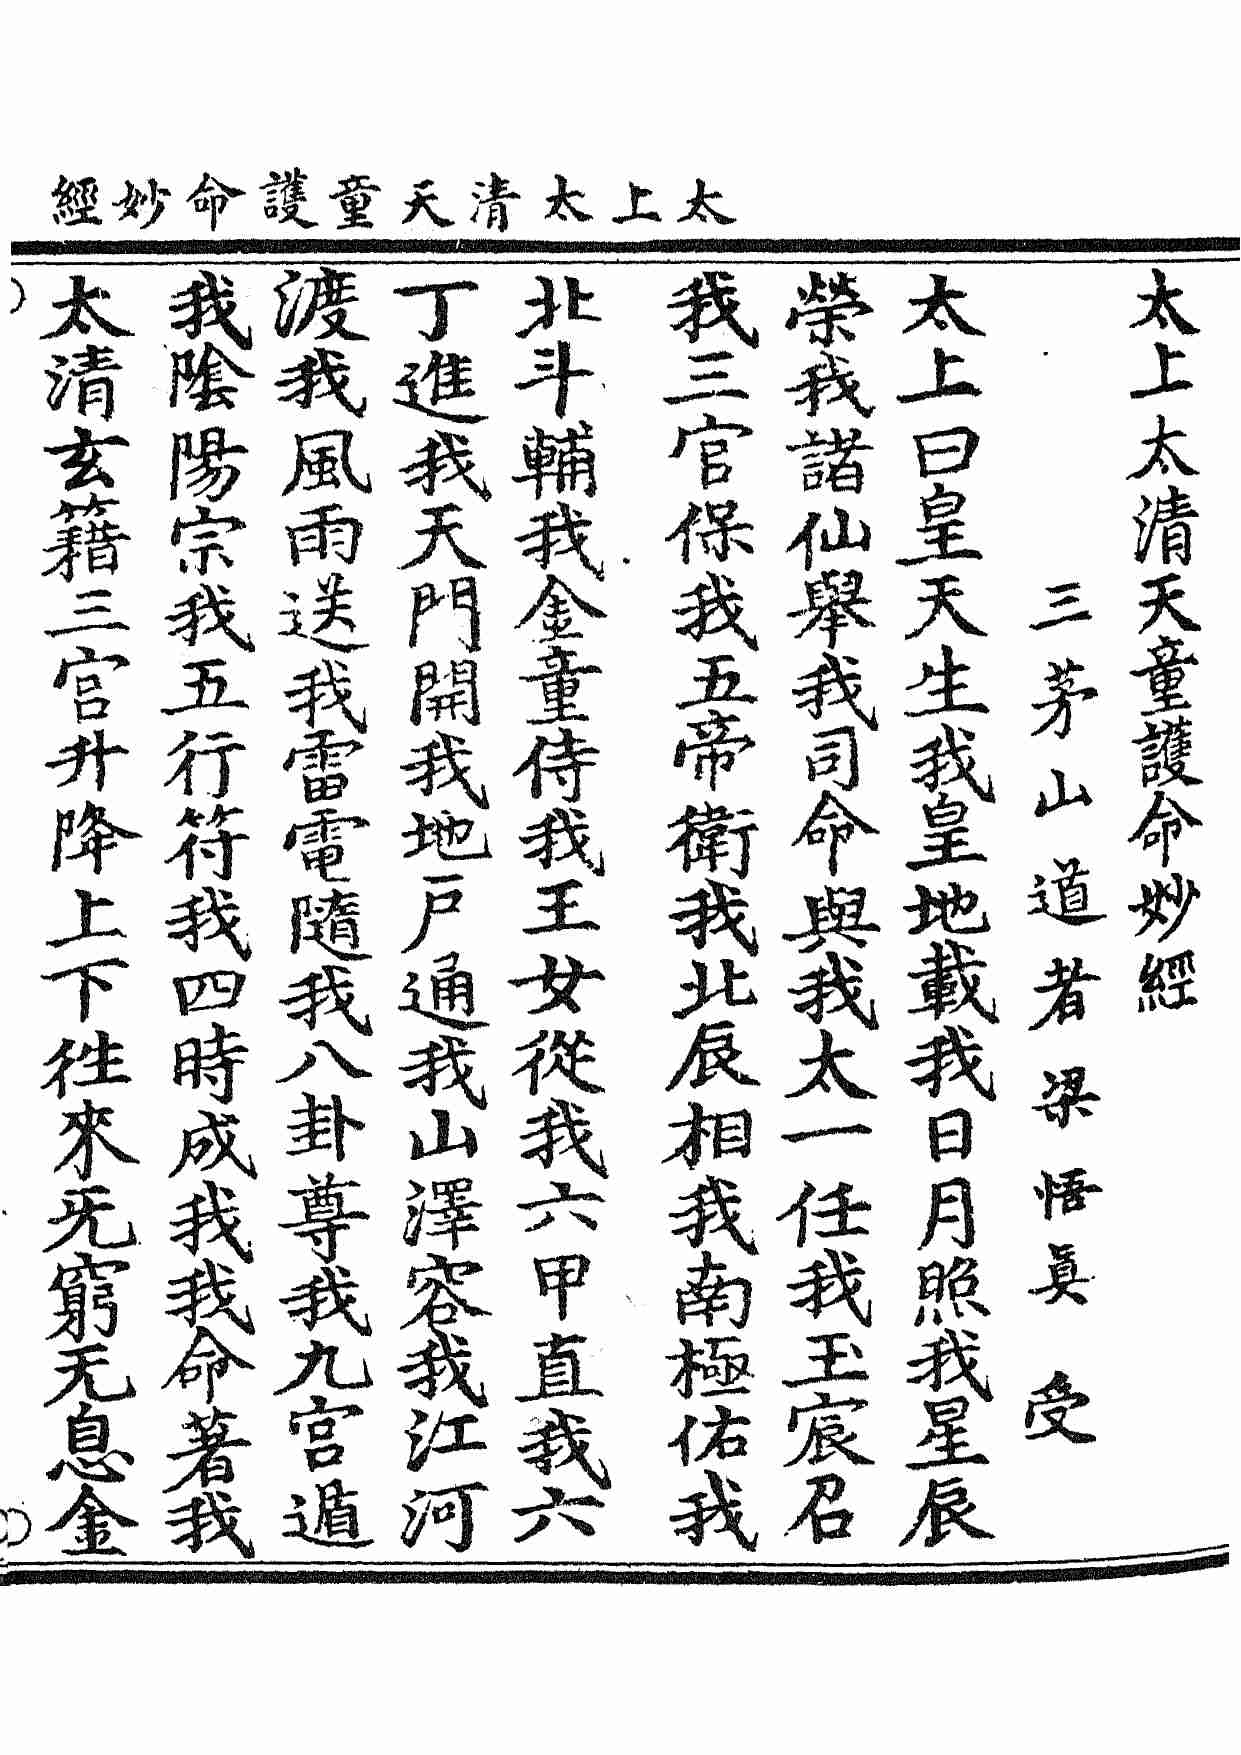 太上太清天童護命妙經
太上太清天童護命妙經
三茅山道者梁悟眞 受
太上曰皇天生我皇地載我日月照我星辰
榮我諸仙舉我司命與我太一任我玉宸召
我三官保我五帝衛我北辰相我南極佑我
北斗輔我金童侍我王女從我六甲直我六
丁進我天門開我地戶通我山澤容我江河
渡我風雨送我雷電隨我八卦尊我九宮遁
我陰陽宗我五行符我四時成我我命著我
太清玄籍三宮升降上下徃來旡窮旡息金